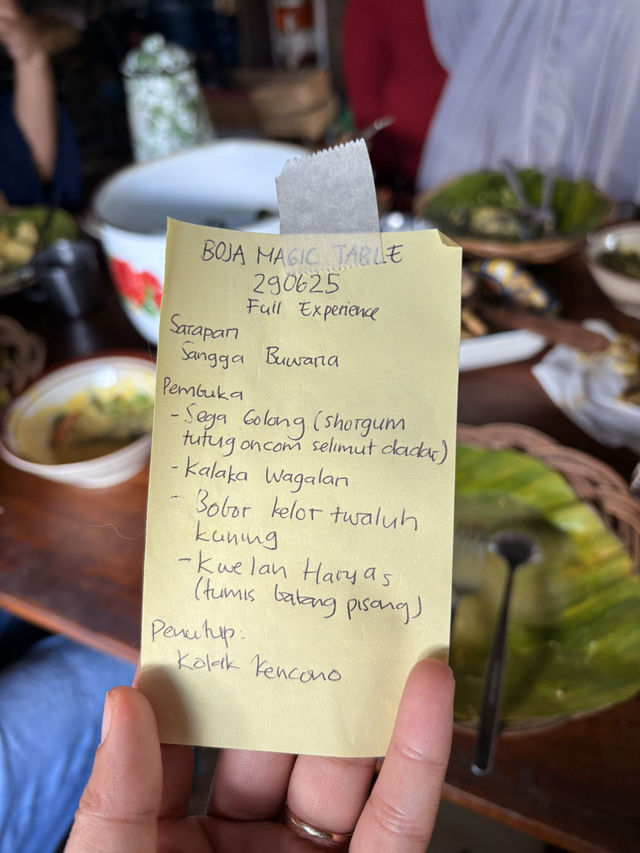 BOJA MAGIC TABLE
290625
Full Experience
Sarapan
Sangga Buwana
Pembuka
- Sega Golong (shorgum
tutug oncom selimut dadar)
- Kalaka Wagalan
- Bobor kelor twaluh
kuning
- Kwelan Haryas
(tumis batang pisang)
Penutup:
Kolak Kencono